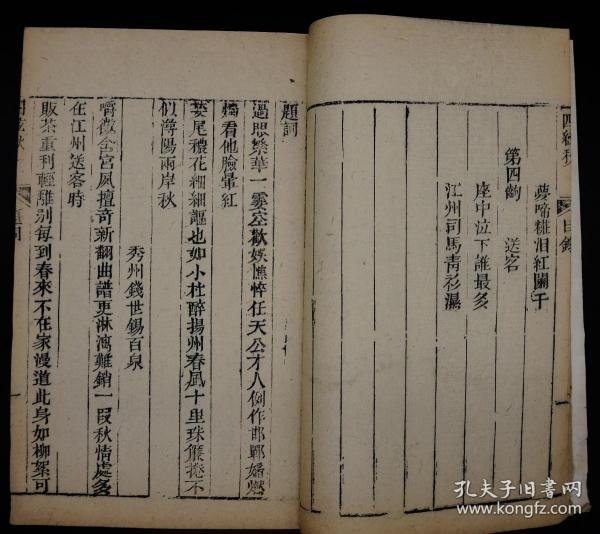 四絃秋 目錄 一
夢啼粧泪紅闌干
第四齣 送客
座中泣下誰最多
江州司馬青衫濕
題詞
過眼繁華一霎空歡娛憔悴任天公才人例作邯鄲婦燃
燭看他臉暈紅
婪尾穠花細細謳也如小杜醉揚州春風十里珠簾捲不
似潯陽兩岸秋
秀州錢世錫百泉
嚼徵含宮夙擅奇新翻曲譜更淋漓難銷一段秋情處多
在江州送客時
販茶重利輕離別每到春來不在家漫道此身如柳絮可
四絃秋 題詞 一
孔夫子旧书网
www.kongfz.com